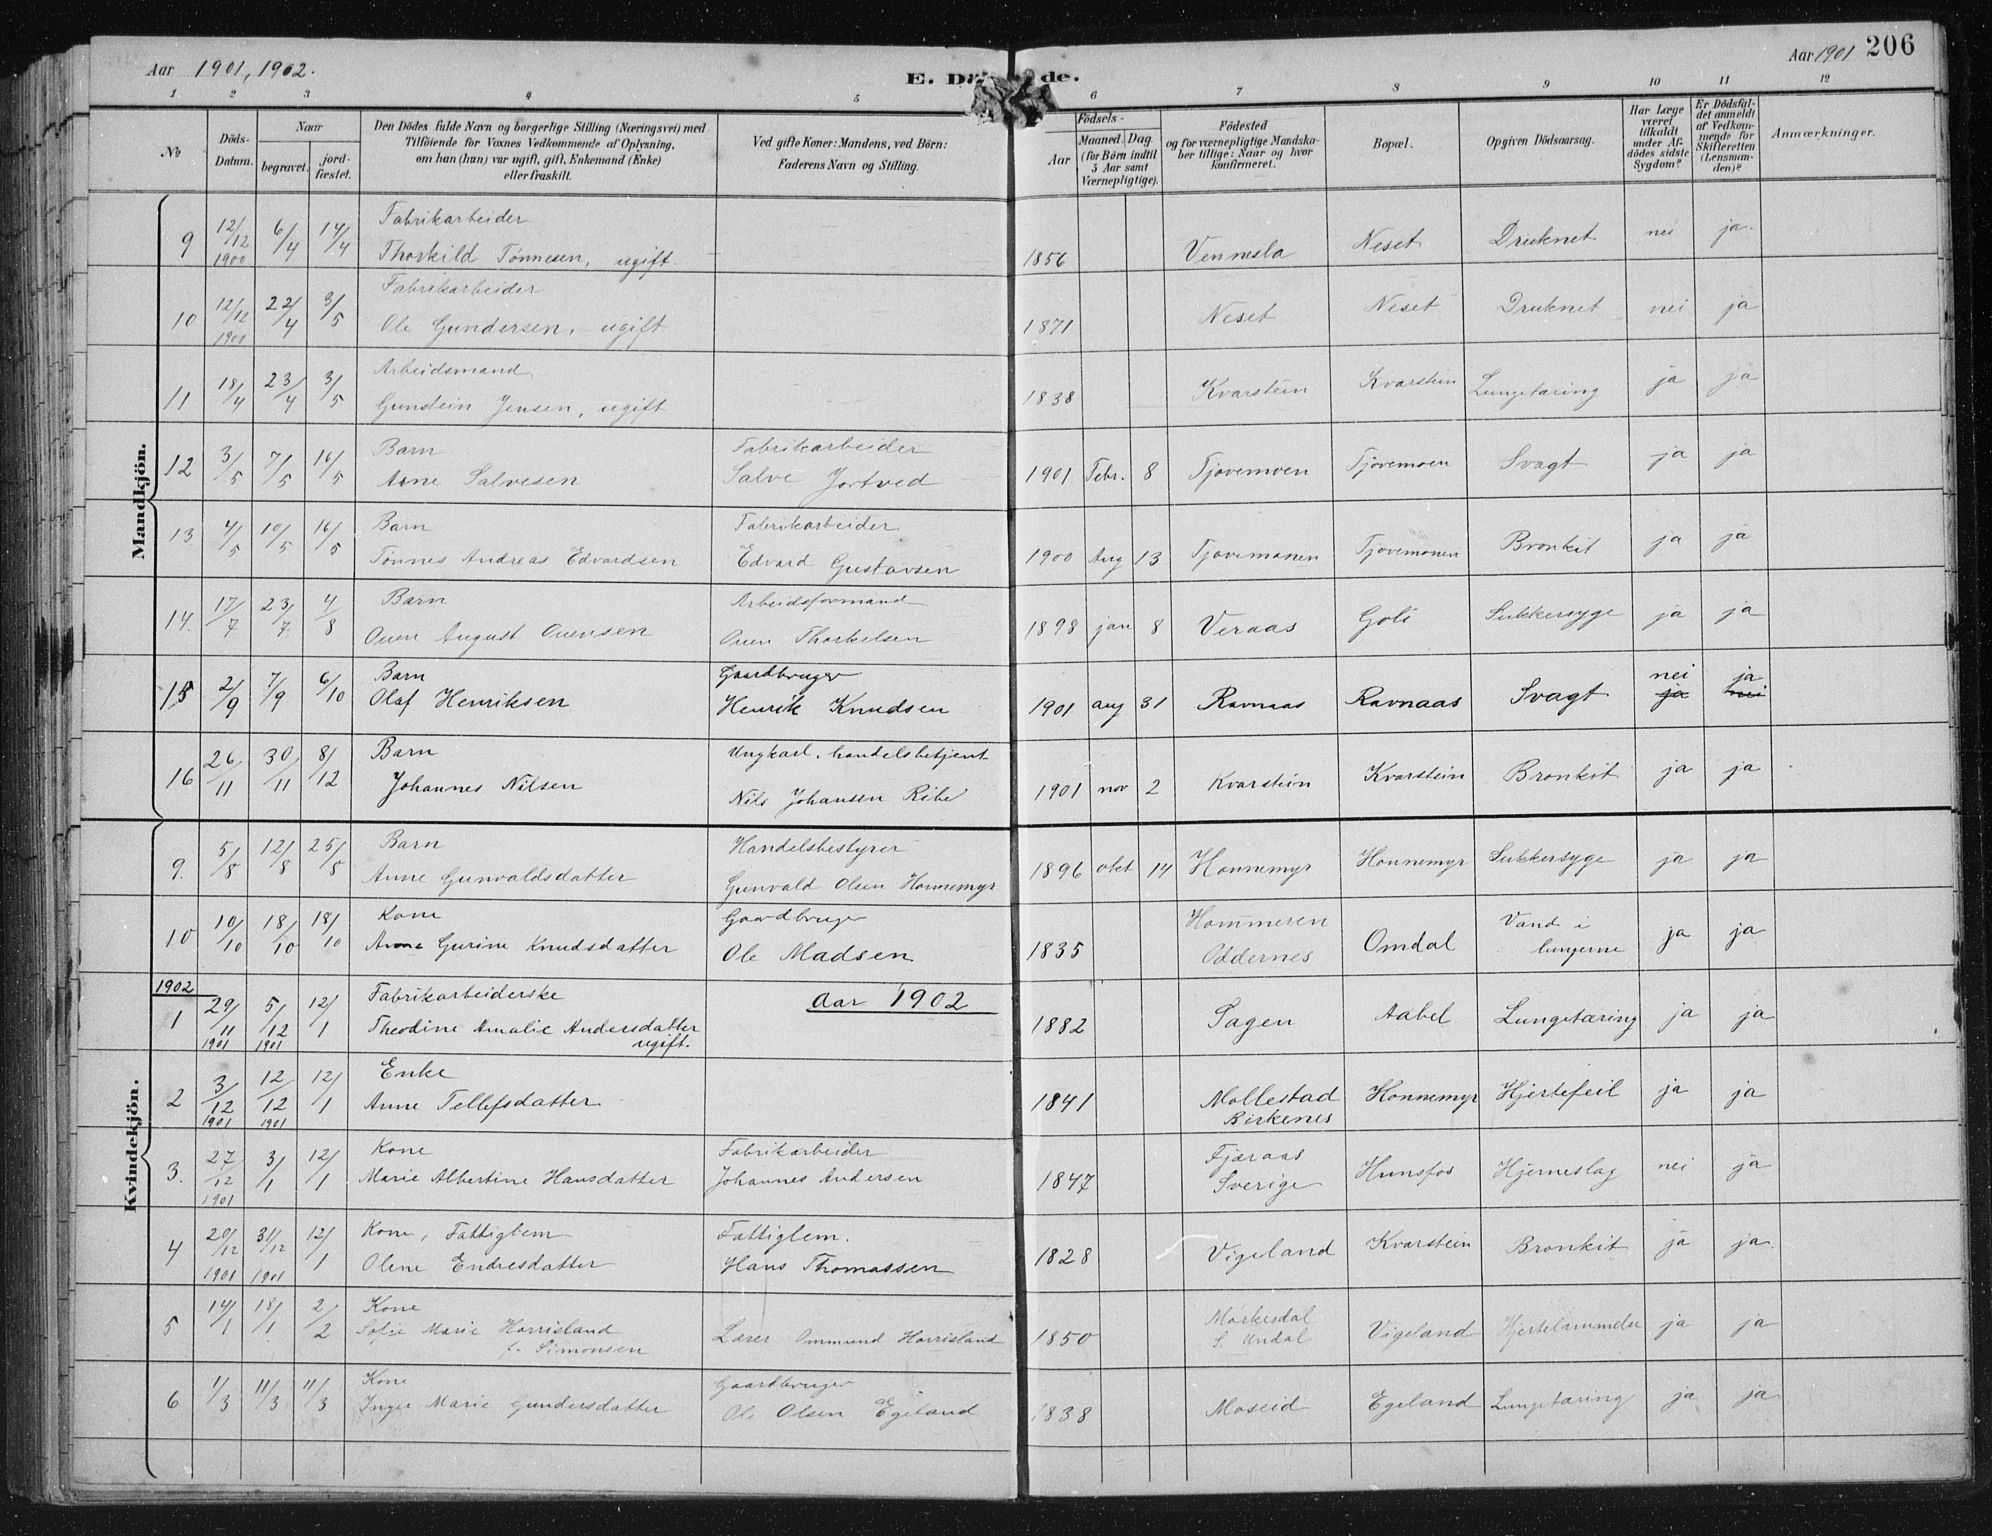 Aar 1901, 1902.
E. Dö de.
Aar 1901 206
1 2 3 4 5 6 7 8 9 10 11 12
No
Döds-Datum.
Naar
begravet.
jord-fæstet.
Den Dödes fulde Navn og borgerlige Stilling (Næringsvei) med
Tilföiende for Voxnes Vedkommende af Oplysning,
om han (hun) var ugift, gift, Enkemand (Enke)
eller fraskilt.
Ved gifte Koner: Mandens, ved Börn:
Faderens Navn og Stilling.
Födsels-
Aar
Maaned. Dag.
(for Börn indtil
5 Aar samt
Værnepligtige).
Födested
og for værnepligtige Mandska-
ber tillige: Naar og hvor
konfirmeret.
Bopæl.
Opgiven Dödsaarsag.
Har Læge
været
tilkaldt
under Af-
dödes sidste
Sygdom?
Er Dödsfal-
det anmeldt
af Vedkom-
mende for
Skifteretten
(Lensman-
den)?
Anmærkninger.
Mandkjön.
9 12/12 1900 6/4 14/4 Fabrikarbeider
Thorkild Tönnesen, ugift. 1856 Vennesla Neset Druknet nei ja.
10 12/12 1900 22/4 3/5 Fabrikarbeider
Ole Gundersen, ugift 1871 Neset Neset Druknet nei ja
11 18/4 23/4 3/5 Arbeidsmand
Gunstein Jensen, ugift 1838 Kvarstein Kvarstein Lungetæring ja ja
12 3/5 7/5 16/5 Barn Fabrikarbeider
Arne Salvesen Salve Jortved 1901 Febr. 8 Tjovemoen Tjovemoen Svagt ja ja
13 4/5 10/5 16/5 Barn Fabrikarbeider
Tönnes Andreas Edvardsen Edvard Gustavsen 1900 Aug 13 Tjovemonen Tjovemonen Bronkit ja ja
14. 17/7 23/7 4/8 Barn Arbeidsformand
Ouen August Ouensen Ouen Thorkelsen 1898 jan 8 Veraas Goli Sukkersyge ja ja
15 2/9 7/9 6/10 Barn Gaardbruger
Olaf Henriksen Henrik Knudsen 1901 aug 31 Ravnaas Ravnaas Svagt nei ja ja nei
16 26/11 30/11 8/12 Barn Ungkarl, handelsbetjent
Johannes Nilsen Nils Johansen Ribe 1901 nov 2 Kvarstein Kvarstein Bronkit ja ja
Kvindekjön.
9. 5/8 12/8 25/8 Barn Handelsbestyrer
Anne Gunvaldsdatter Gunvald Olsen Honnemyr 1896 okt 14 Honnemyr Honnemyr Sukkersyge ja ja
10 10/10 18/10 18/10 Kone Gaardbruger
Anne Gurine Knudsdatter Ole Madsen 1835 Hommeren
Oddernes Omdal Vand i
lungerne ja ja
1902
1 29/11 1901 5/12 1901 12/1 Fabrikarbeiderske Aar 1902
Theodine Amalie Andersdatter
ugift. 1882 Sagen Aabel Lungetæring ja ja
2 3/12 1901 12/12 1901 12/1 Enke
Anne Tellefsdatter 1841 Mollestad
Birkenes Honnemyr Hjertefeil ja ja
3. 27/12 1901 3/1 12/1 Kone Fabrikarbeider
Marie Albertine Hansdatter Johannes Andersen 1847 Fjæraas
Sverige Hunsfos Hjerneslag nei ja
4 20/12 1901 31/12 1901 12/1 Kone, Fattiglem Fattiglem.
Olene Endresdatter Hans Thomassen 1828 Vigeland Kvarstein Bronkit ja ja.
5 14/1 18/1 2/2 Kone
Sofie Marie Horrisland
f. Simonsen Lærer Ommund Horrisland 1850 Mörkesdal
S. Undal Vigeland Hjertelammelse ja ja
6 1/3 11/3 11/3 Kone Gaardbruger
Inger Marie Gundersdatter Ole Olsen Egeland 1838 Moseid Egeland Lungetæring ja ja